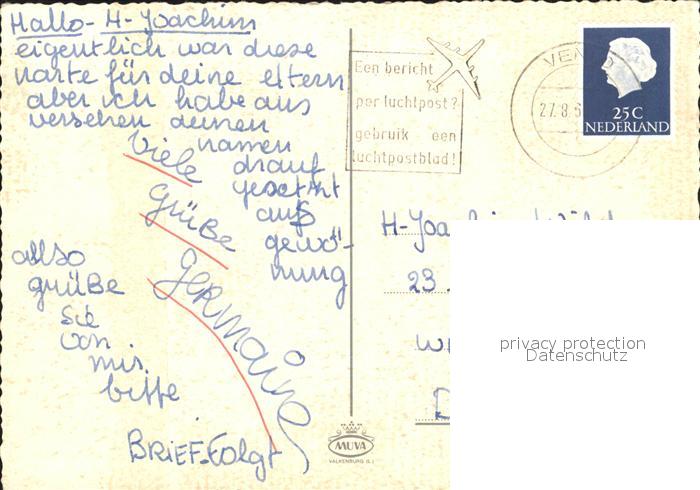 Hallo- H-Joachim
eigentlich war diese
karte für deine eltern
aber ich habe aus
versehen deinen
namen
drauf
gesetzt
auß
gewö-
nung
Viele
grüße
Germaine
allso
grüße
sie
von
mir
bitte
BRIEF-Folgt
Een bericht
per luchtpost?
gebruik een
luchtpostblad!
VEN
27.8.6
25C
NEDERLAND
H-Joa
23.
W
privacy protection
Datenschutz
MUVA
VALKENBURG (L.)